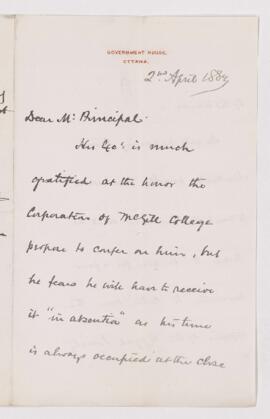 GOVERNMENT HOUSE,
OTTAWA.
2nd April 1884
Dear Mr Principal
His Excy is much
gratified at the honor the
Corporation of McGill College
propose to confer on him, but
he fears he will have to receive
it "in absentia" as his time
is always occupied at the close